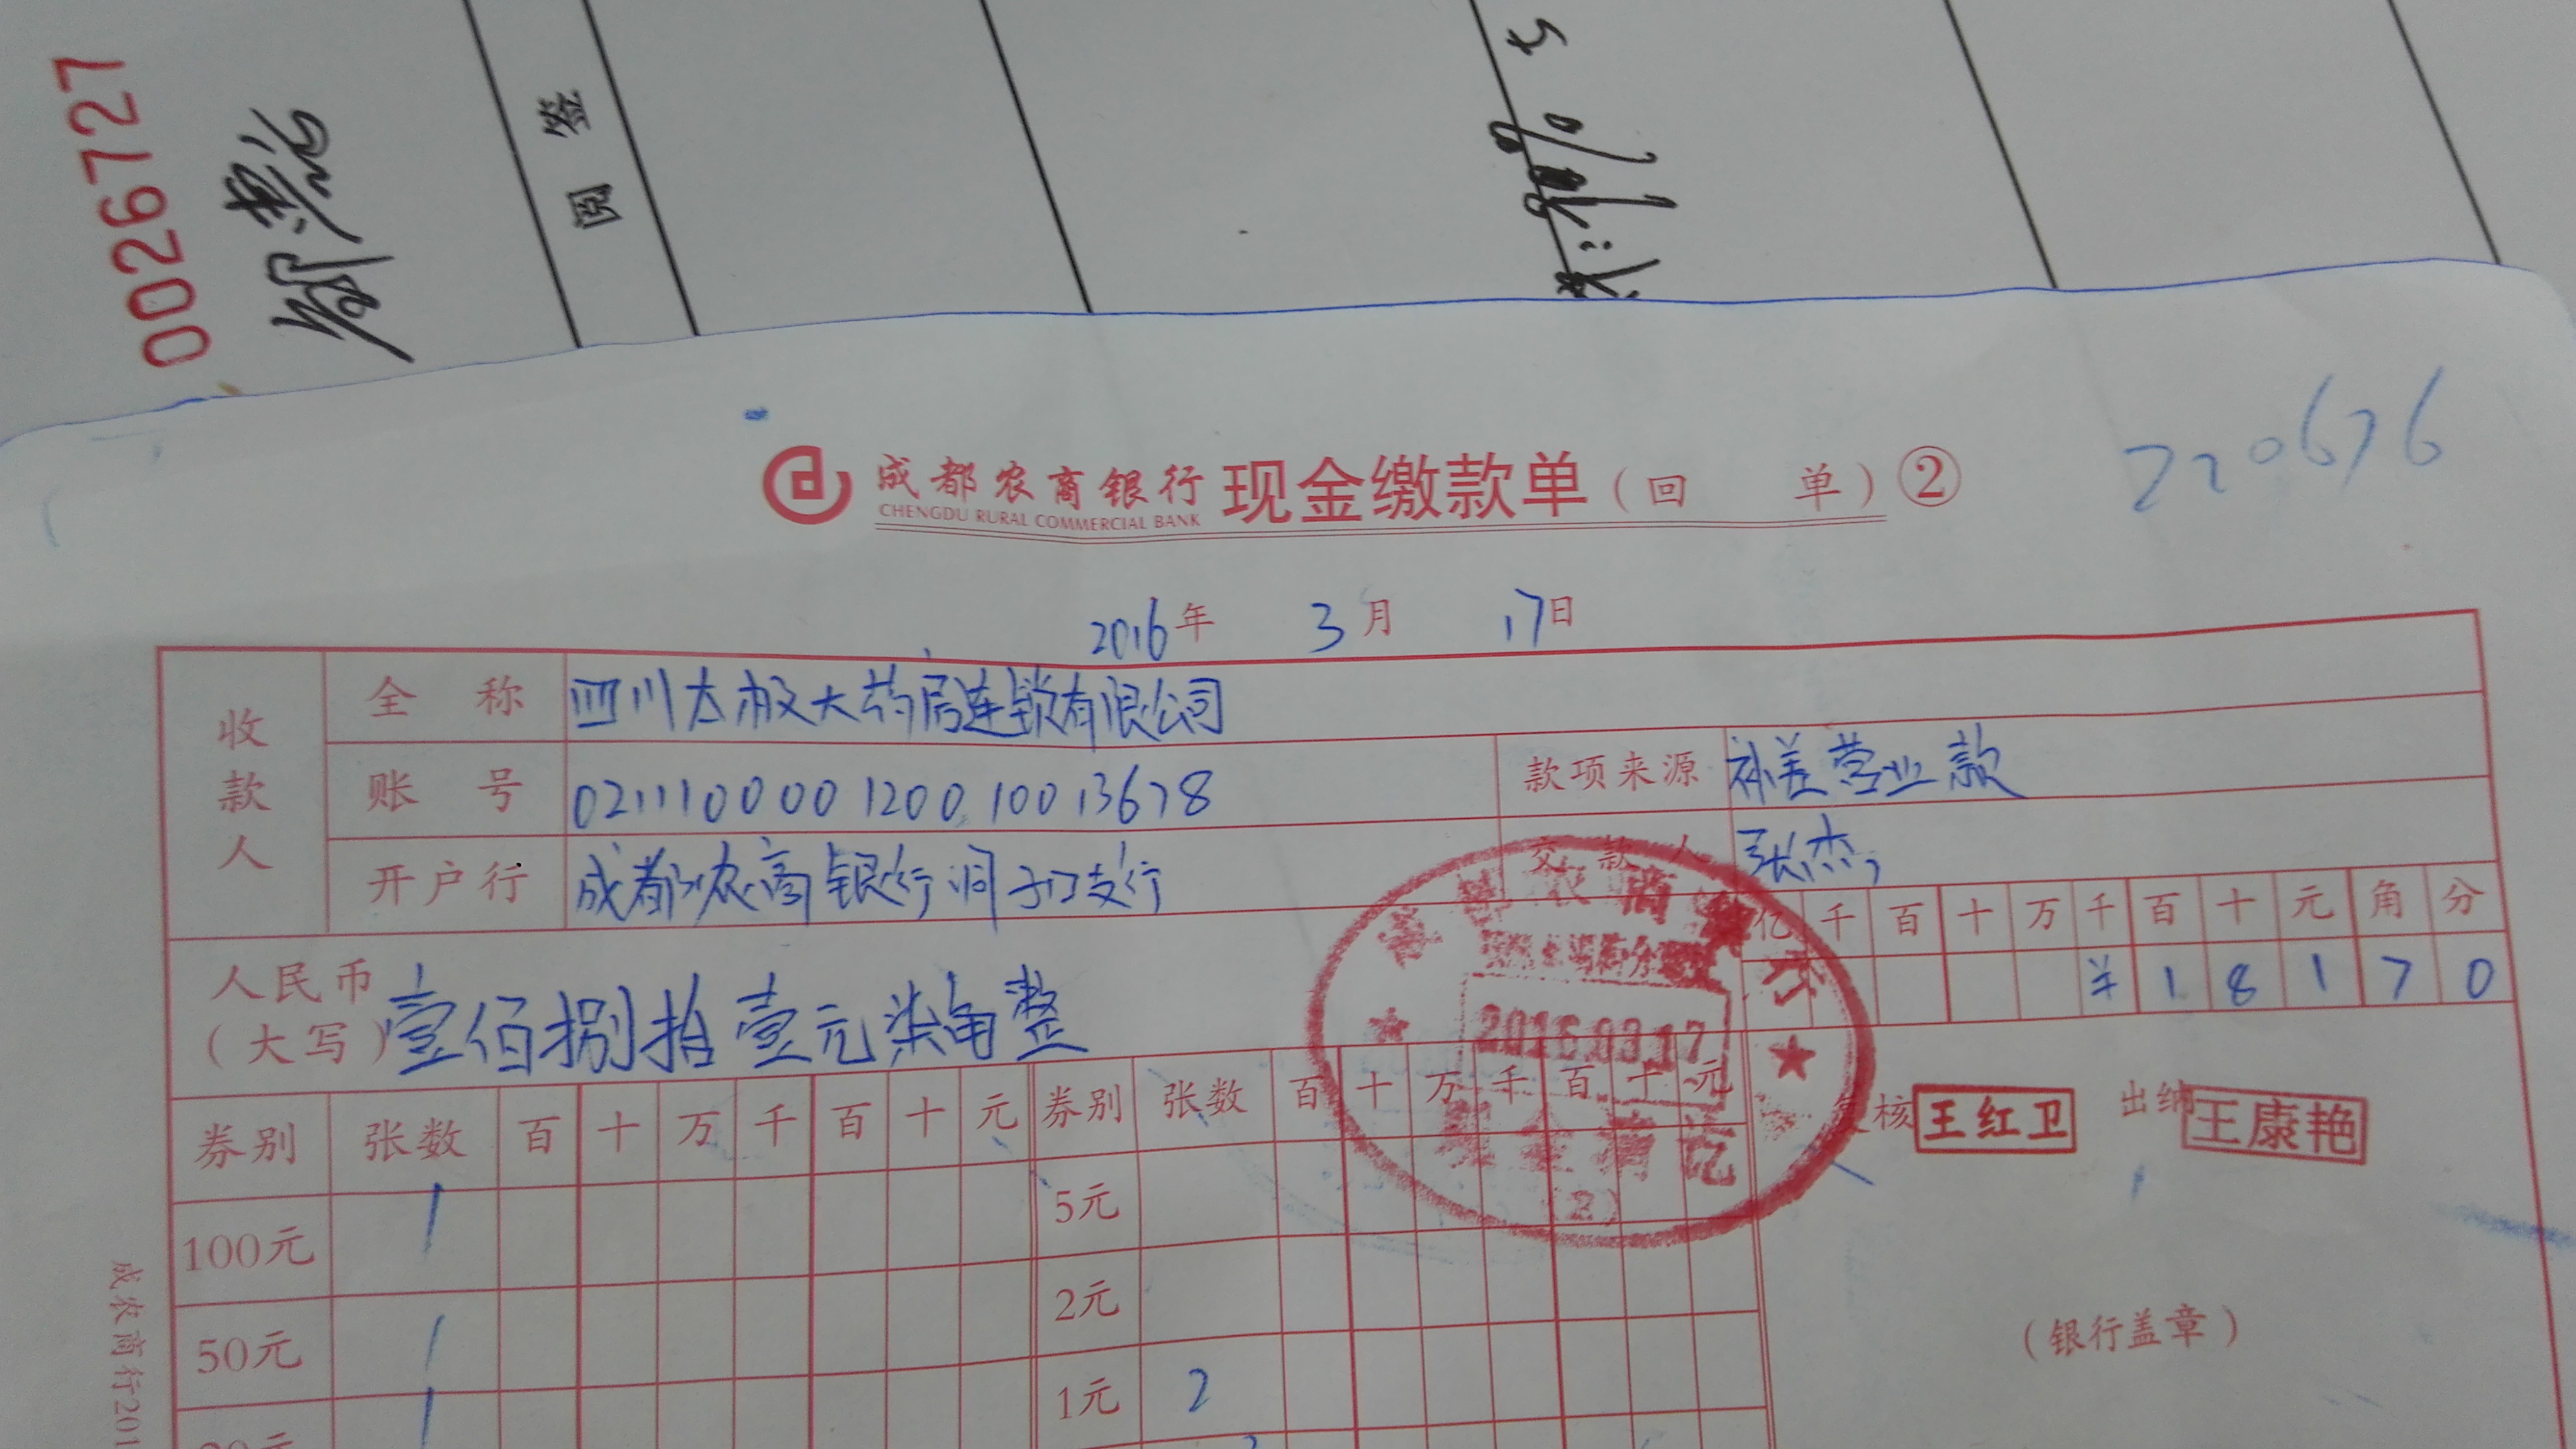 0026727
签阅
成都农商银行 现金缴款单（回 单）②
CHENGDU RURAL COMMERCIAL BANK
220676
2016年 3月 17日
收款人
全 称 四川太极大药房连锁有限公司
账 号 021110000120010013678
款项来源 补差营业款
开户行 成都农商银行洞子口支行
交款人 张杰
人民币（大写）壹佰捌拾壹元柒角整
亿 千 百 十 万 千 百 十 元 角 分
¥ 1 8 1 7 0
2016.03.17
现金清讫
(2)
复核 王红卫 出纳 王康艳
券别 张数 百 十 万 千 百 十 元 券别 张数 百 十 万 千 百 十 元
100元 1 5元
50元 1 2元
20元 1 1元 2
（银行盖章）
成农商行201